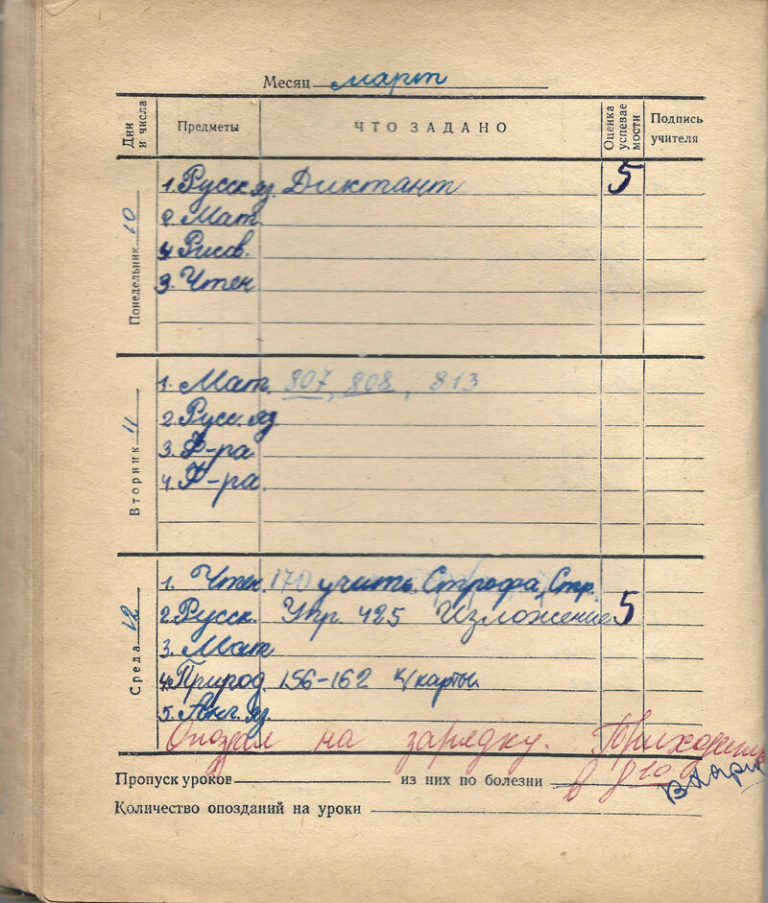 Месяц март
Дни и числа Предметы ЧТО ЗАДАНО Оценка успевае мости Подпись учителя
Понедельник 10
1. Русск. яз. Диктант 5
2. Мат
4 Рисов.
3. Чтен
Вторник 11
1. Мат. 807, 808, 813
2 Русс. яз
3. Ф-ра
4. Ф-ра.
Среда 12
1. Чтен. 170 учить. Строфа, Стр.
2. Русск. Упр. 425 Изложение 5
3. Мат
4. Природ. 156-162 к/карты.
5. Анг. яз.
Опоздал на зарядку. Приходить
Пропуск уроков из них по болезни в 8 10
Количество опозданий на уроки